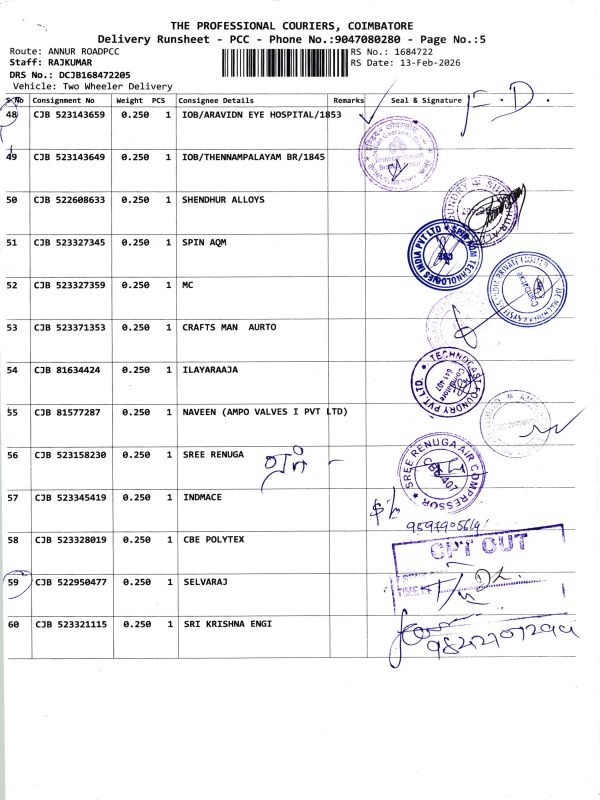 THE PROFESSIONAL COURIERS, COIMBATORE
Delivery Runsheet - PCC - Phone No.:9047080280 - Page No.:5
Route: ANNUR ROADPCC RS No.: 1684722
Staff: RAJKUMAR RS Date: 13-Feb-2026
DRS No.: DCJB168472205
Vehicle: Two Wheeler Delivery
S No Consignment No Weight PCS Consignee Details Remarks Seal & Signature
F.D.
48 CJB 523143659 0.250 1 IOB/ARAVIDN EYE HOSPITAL/1853
49 CJB 523143649 0.250 1 IOB/THENNAMPALAYAM BR/1845
50 CJB 522608633 0.250 1 SHENDHUR ALLOYS
51 CJB 523327345 0.250 1 SPIN AQM
52 CJB 523327359 0.250 1 MC
53 CJB 523371353 0.250 1 CRAFTS MAN AURTO
54 CJB 81634424 0.250 1 ILAYARAAJA
TECHNOCAST FOUNDRY PVT.LTD.
641 407
55 CJB 81577287 0.250 1 NAVEEN (AMPO VALVES I PVT LTD)
56 CJB 523158230 0.250 1 SREE RENUGA
SREE RENUGA AIR COMPRESSOR
57 CJB 523345419 0.250 1 INDMACE
58 CJB 523328019 0.250 1 CBE POLYTEX
OPT OUT
59 CJB 522950477 0.250 1 SELVARAJ
60 CJB 523321115 0.250 1 SRI KRISHNA ENGI